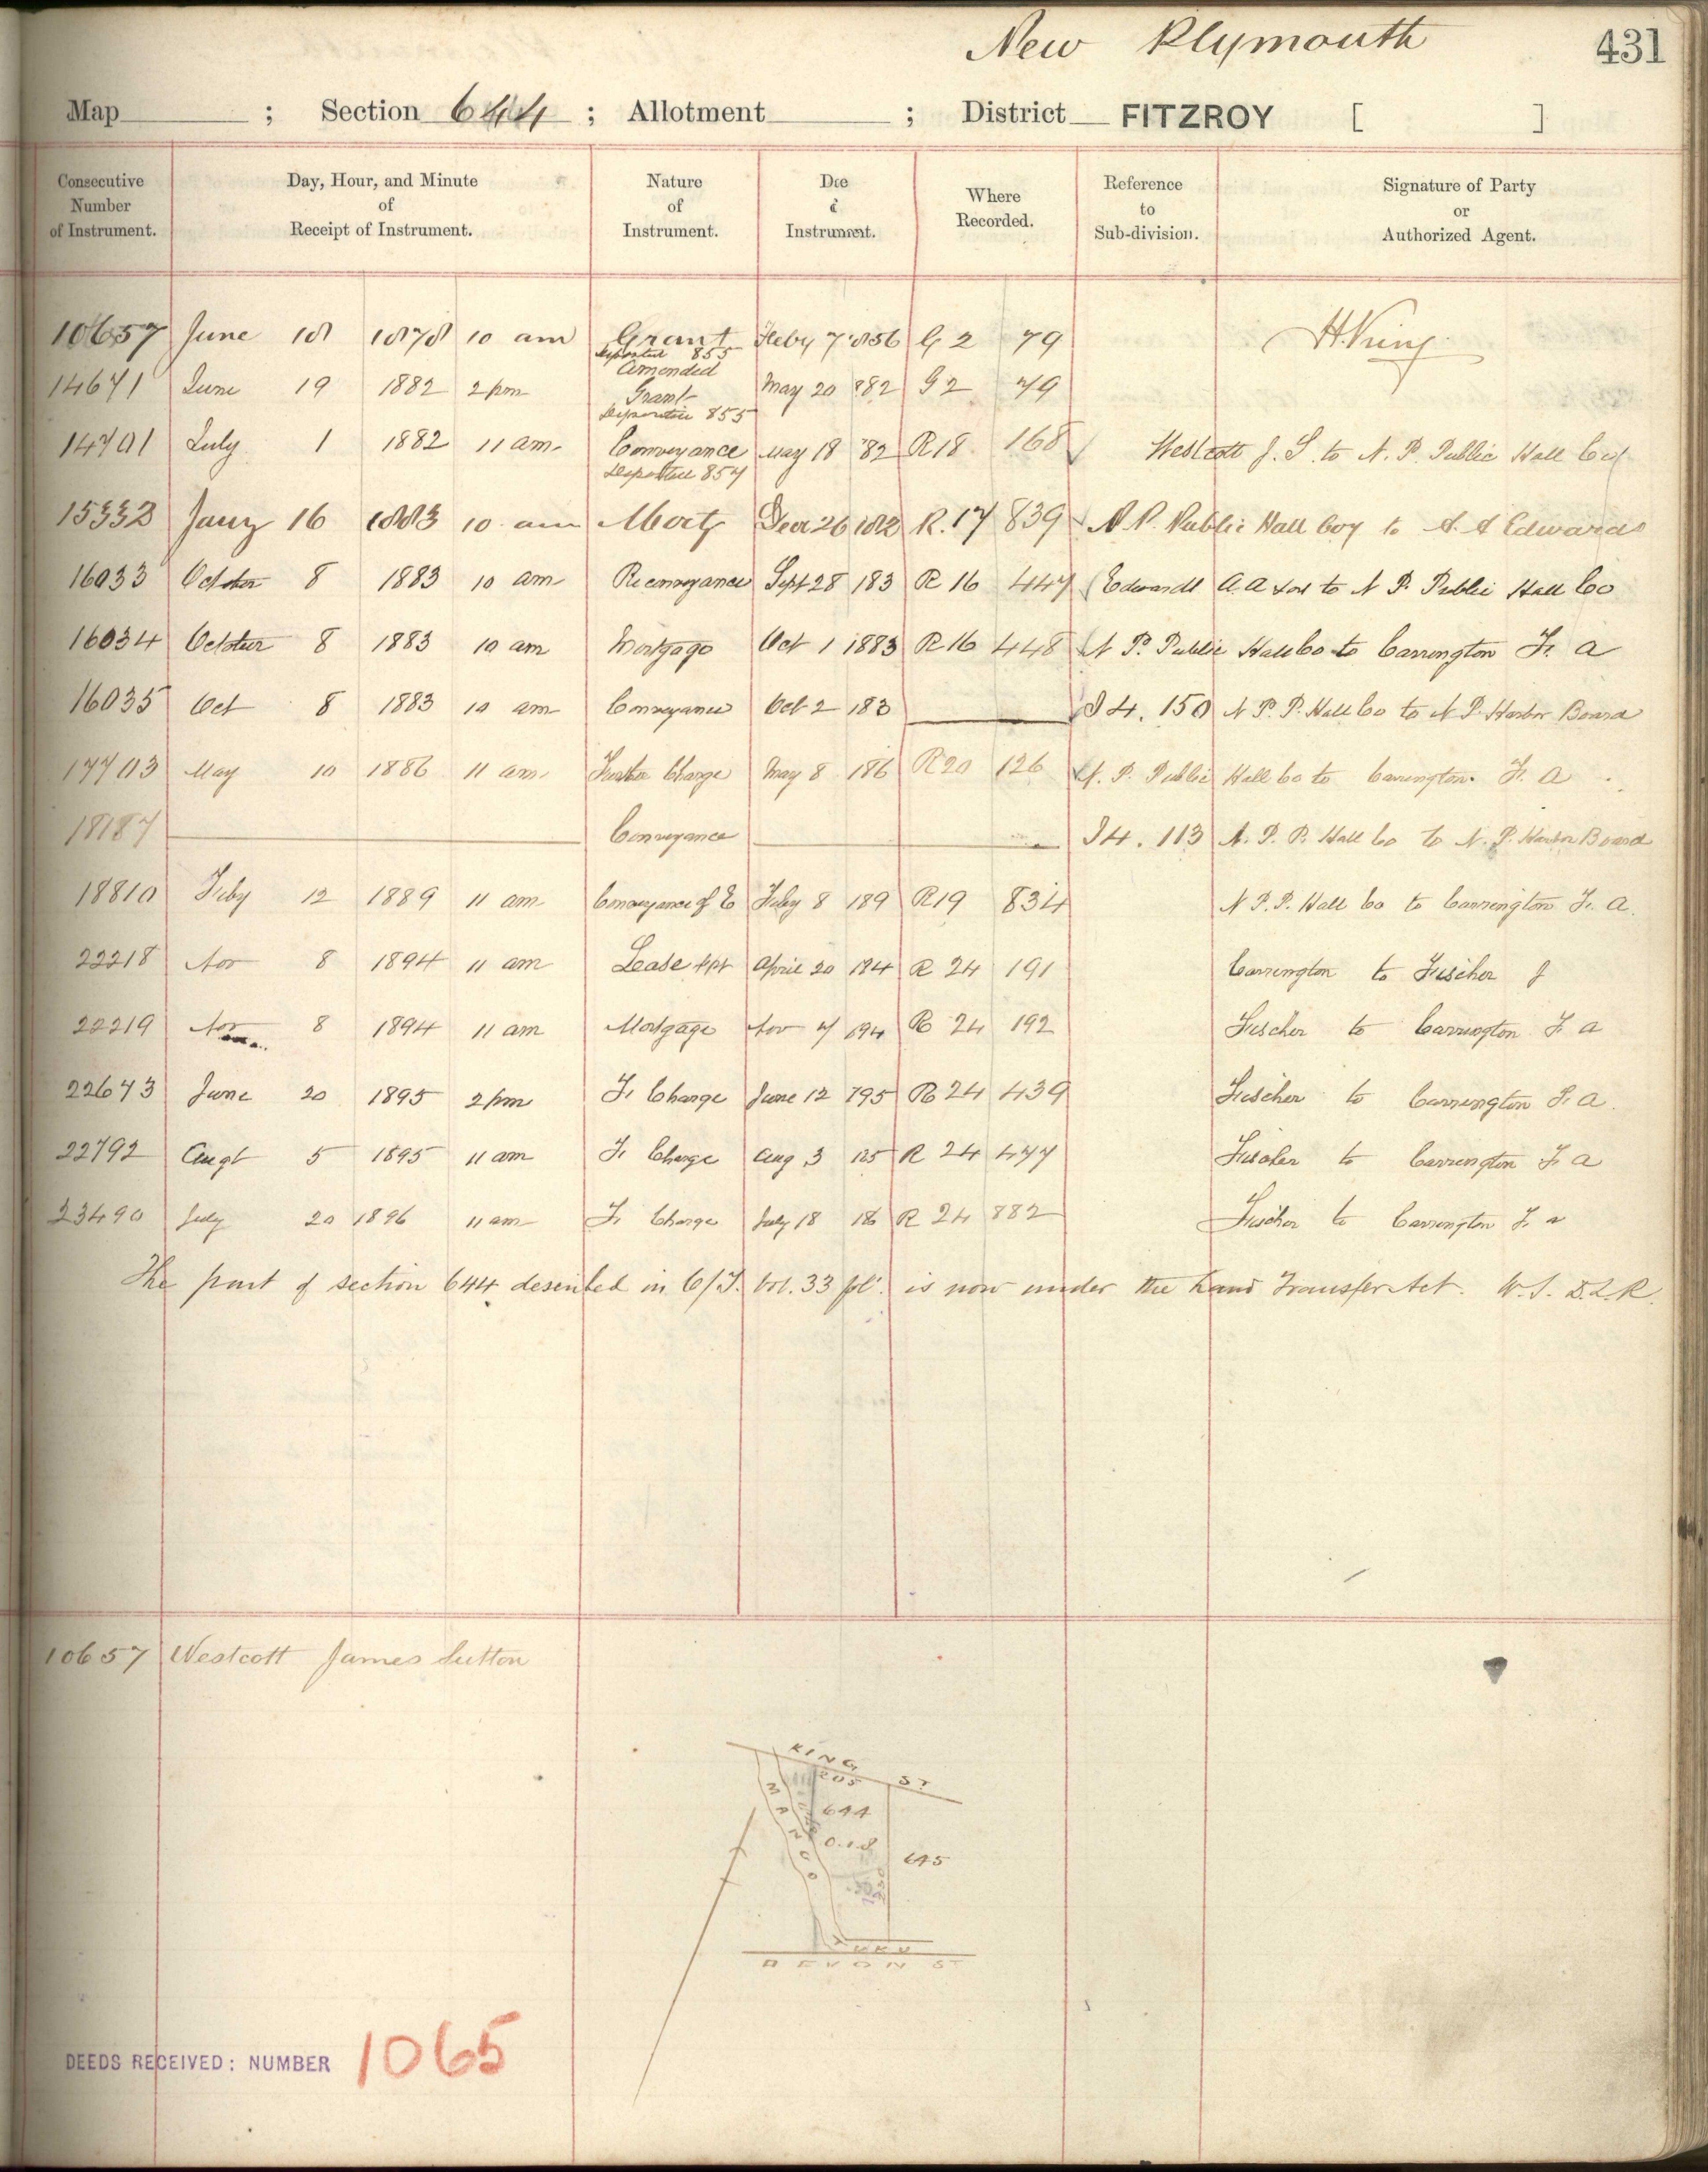 New Plymouth
431
Map ; Section 644 ; Allotment ; District FITZROY [ ]
Consecutive Number of Instrument.
Day, Hour, and Minute of Receipt of Instrument.
Nature of Instrument.
Instrument.
Where Recorded.
Reference to Sub-division.
Signature of Party or Authorized Agent.
10657 June 18 1878 10 am Grant Feby 7 1856 G 2 79 H. King
855
Amended
14671 June 19 1882 2 pm Grant May 20 1882 G 2 79
855
14701 July 1 1882 11 am Conveyance May 18 '82 R18 168 Westcott J. S. to N. P. Public Hall Coy
15332 Jany 16 1883 10 am Mortg Decr 26 1882 R. 17 839 N. P. Public Hall Coy to A. A Edwards
16033 October 8 1883 10 am Reconveyance Sept 28 183 R 16 447 Edwards A. A to N P. Public Hall Co
16034 October 8 1883 10 am Mortgage Oct 1 1883 R 16 448 N P. Public Hall Co to Carrington F. A
16035 Oct 8 1883 10 am Conveyance Oct 2 183 I 4. 150 N P. P. Hall Co to N P. Harbor Board
17703 May 10 1886 11 am Further Charge May 8 186 R20 126 N. P. Public Hall Co to Carrington F. A
18187 Conveyance I 4. 113 N. P. P. Hall Co to N. P. Harbor Board
18810 Feby 12 1889 11 am Conveyance of E Feby 8 189 R19 834 N P. P. Hall Co to Carrington F. A.
22218 Nov 8 1894 11 am Lease April 20 194 R 24 191 Carrington to Fischer J
22219 Nov 8 1894 11 am Mortgage Nov 7 194 R 24 192 Fischer to Carrington F A
22673 June 20 1895 2 pm F. Charge June 12 195 R 24 439 Fischer to Carrington F. A.
22792 Augt 5 1895 11 am F. Charge Aug 3 195 R 24 477 Fischer to Carrington F. A
23490 July 20 1896 11 am F. Charge July 18 R 24 882 Fischer to Carrington F. A
The part of section 644 described in C/T. Vol. 33 fol. is now under the Land Transfer Act. W. S. D.L.R.
10657 Westcott James Sutton
KING ST
205
644
0.1.8
645
DEVON ST
DEEDS RECEIVED: NUMBER 1065